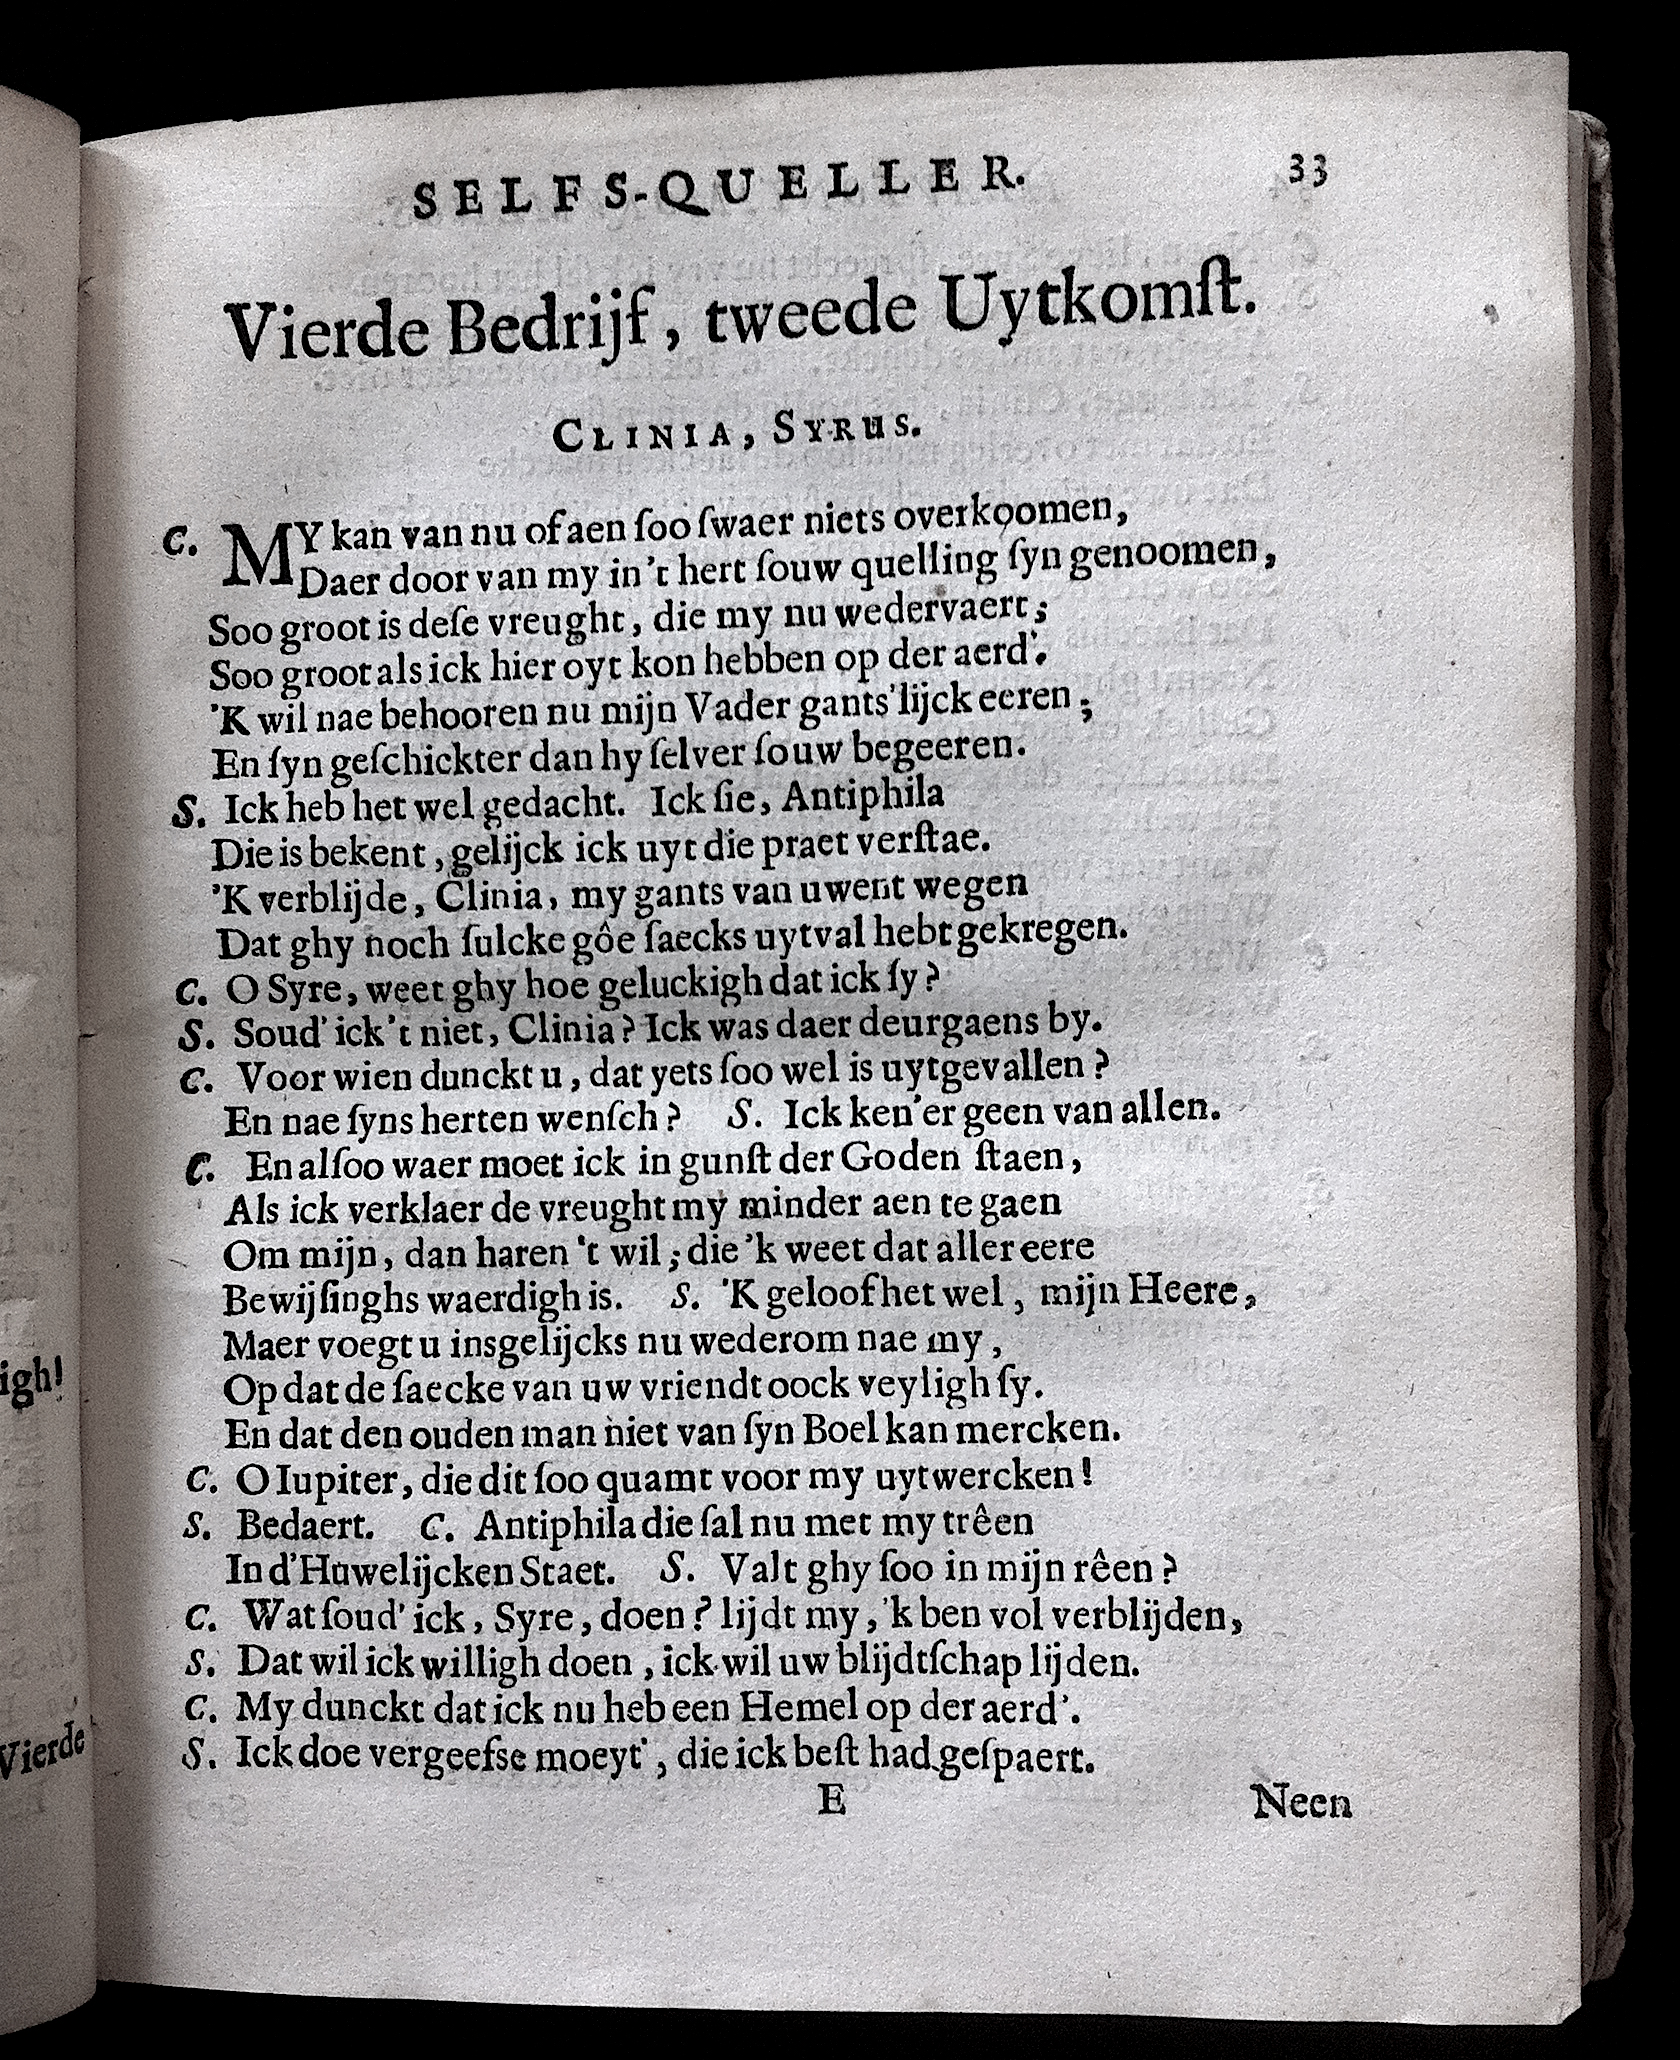 SELFS-QUELLER. 33
Vierde Bedrijf, tweede Uytkomſt.
CLINIA, SYRUS.
C. MY kan van nu of aen ſoo ſwaer niets overkoomen,
Daer door van my in 't hert ſouw quelling ſyn genoomen,
Soo groot is deſe vreught, die my nu wedervaert;
Soo groot als ick hier oyt kon hebben op der aerd'.
'K wil nae behooren nu mijn Vader gants'lijck eeren;
En ſyn geſchickter dan hy ſelver ſouw begeeren.
S. Ick heb het wel gedacht. Ick ſie, Antiphila
Die is bekent, gelijck ick uyt die praet verſtae.
'K verblijde, Clinia, my gants van uwent wegen
Dat ghy noch ſulcke gôe ſaecks uytval hebt gekregen.
C. O Syre, weet ghy hoe geluckigh dat ick ſy?
S. Soud' ick 't niet, Clinia? Ick was daer deurgaens by.
C. Voor wien dunckt u, dat yets ſoo wel is uytgevallen?
En nae ſyns herten wenſch? S. Ick ken'er geen van allen.
C. En alſoo waer moet ick in gunſt der Goden ſtaen,
Als ick verklaer de vreught my minder aen te gaen
Om mijn, dan haren 't wil; die 'k weet dat aller eere
Bewijſinghs waerdigh is. S. 'K geloof het wel, mijn Heere,
Maer voegt u insgelijcks nu wederom nae my,
Op dat de ſaecke van uw vriendt oock veyligh ſy.
En dat den ouden man niet van ſyn Boel kan mercken.
C. O Iupiter, die dit ſoo quamt voor my uytwercken!
S. Bedaert. C. Antiphila die ſal nu met my trêen
In d'Huwelijcken Staet. S. Valt ghy ſoo in mijn rêen?
C. Wat ſoud' ick, Syre, doen? lijdt my, 'k ben vol verblijden,
S. Dat wil ick willigh doen, ick wil uw blijdtſchap lijden.
C. My dunckt dat ick nu heb een Hemel op der aerd'.
S. Ick doe vergeefse moeyt', die ick beſt had geſpaert.
E Neen
igh!
Vierde